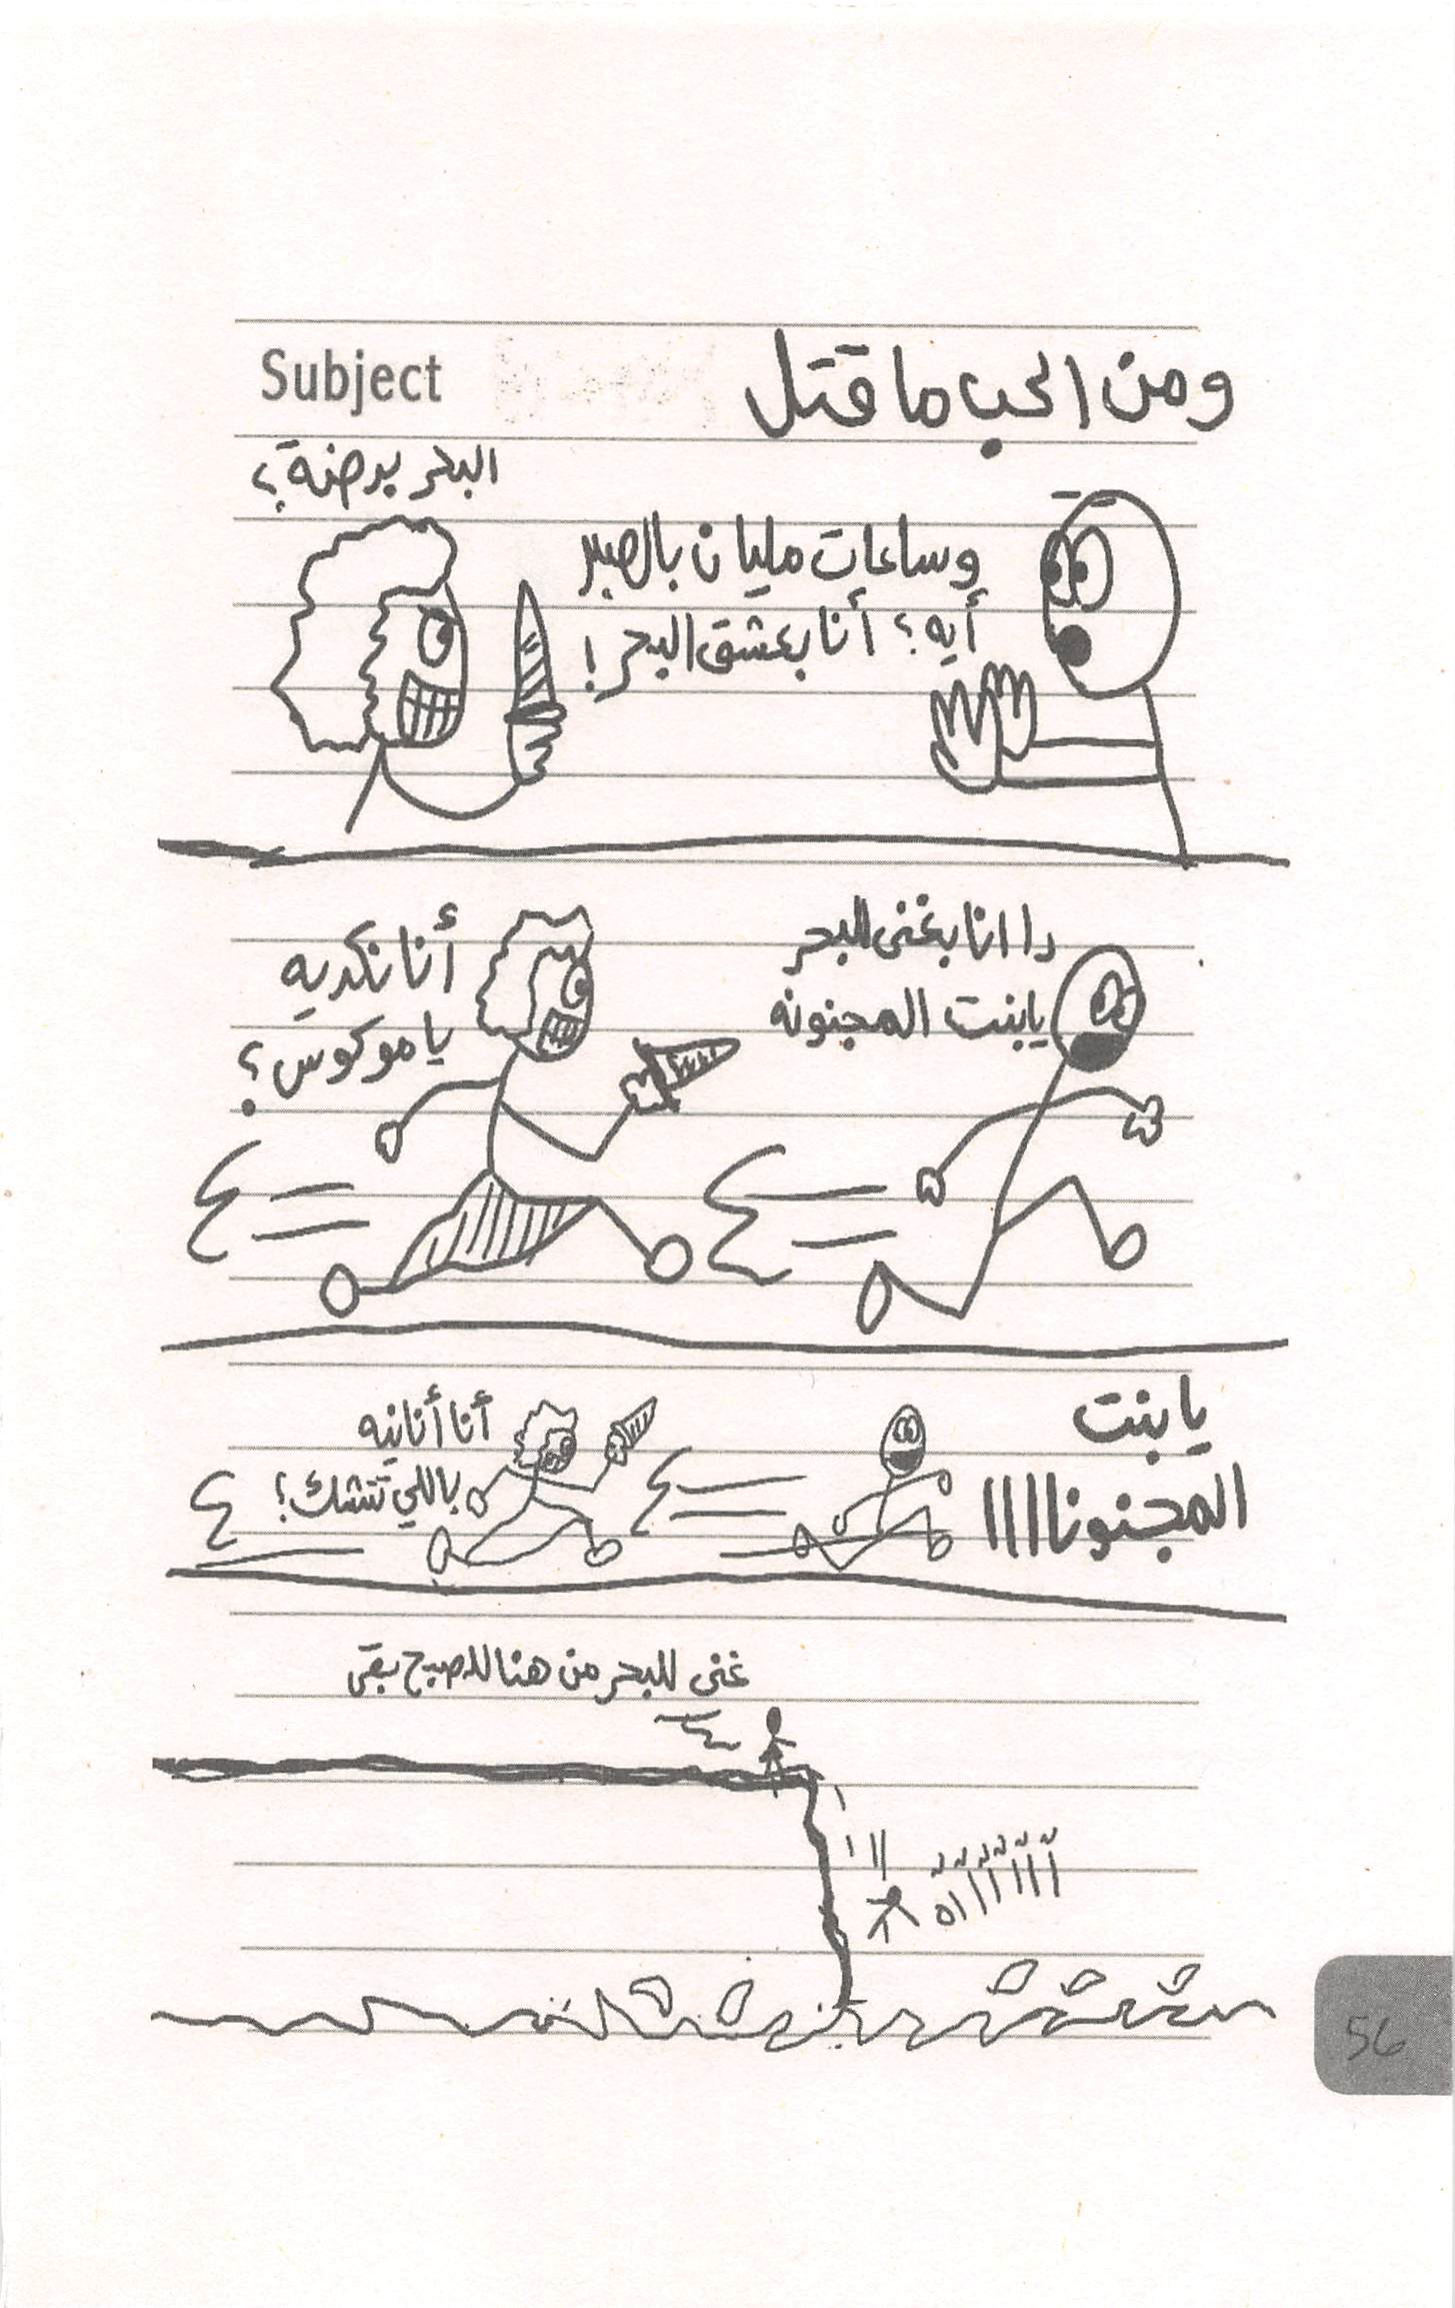 Subject
ومن الحب ما قتل
البحر برضنة؟
وساعات مليان بالصبر
أيه؟ أنا بعشق البحر!
دا انا بغنى للبحر
يابنت المجنونه
أنا نكديه
يا موكوس؟
يا بنت
المجنوناااا
أنا أنانيه
ياللي تتشك؟
غنى للبحر من هنا للصبح بقى
آآآآآآه
56